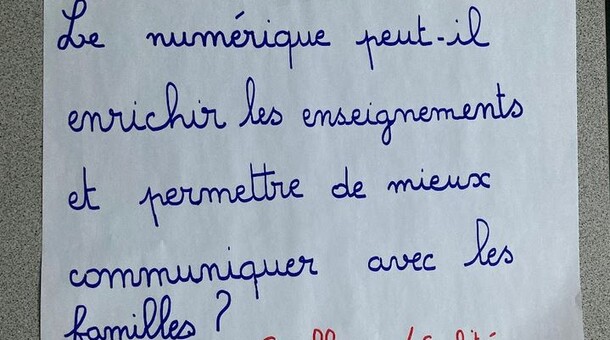 Le numérique peut-il
enrichir les enseignements
et permettre de mieux
communiquer avec les
familles ?